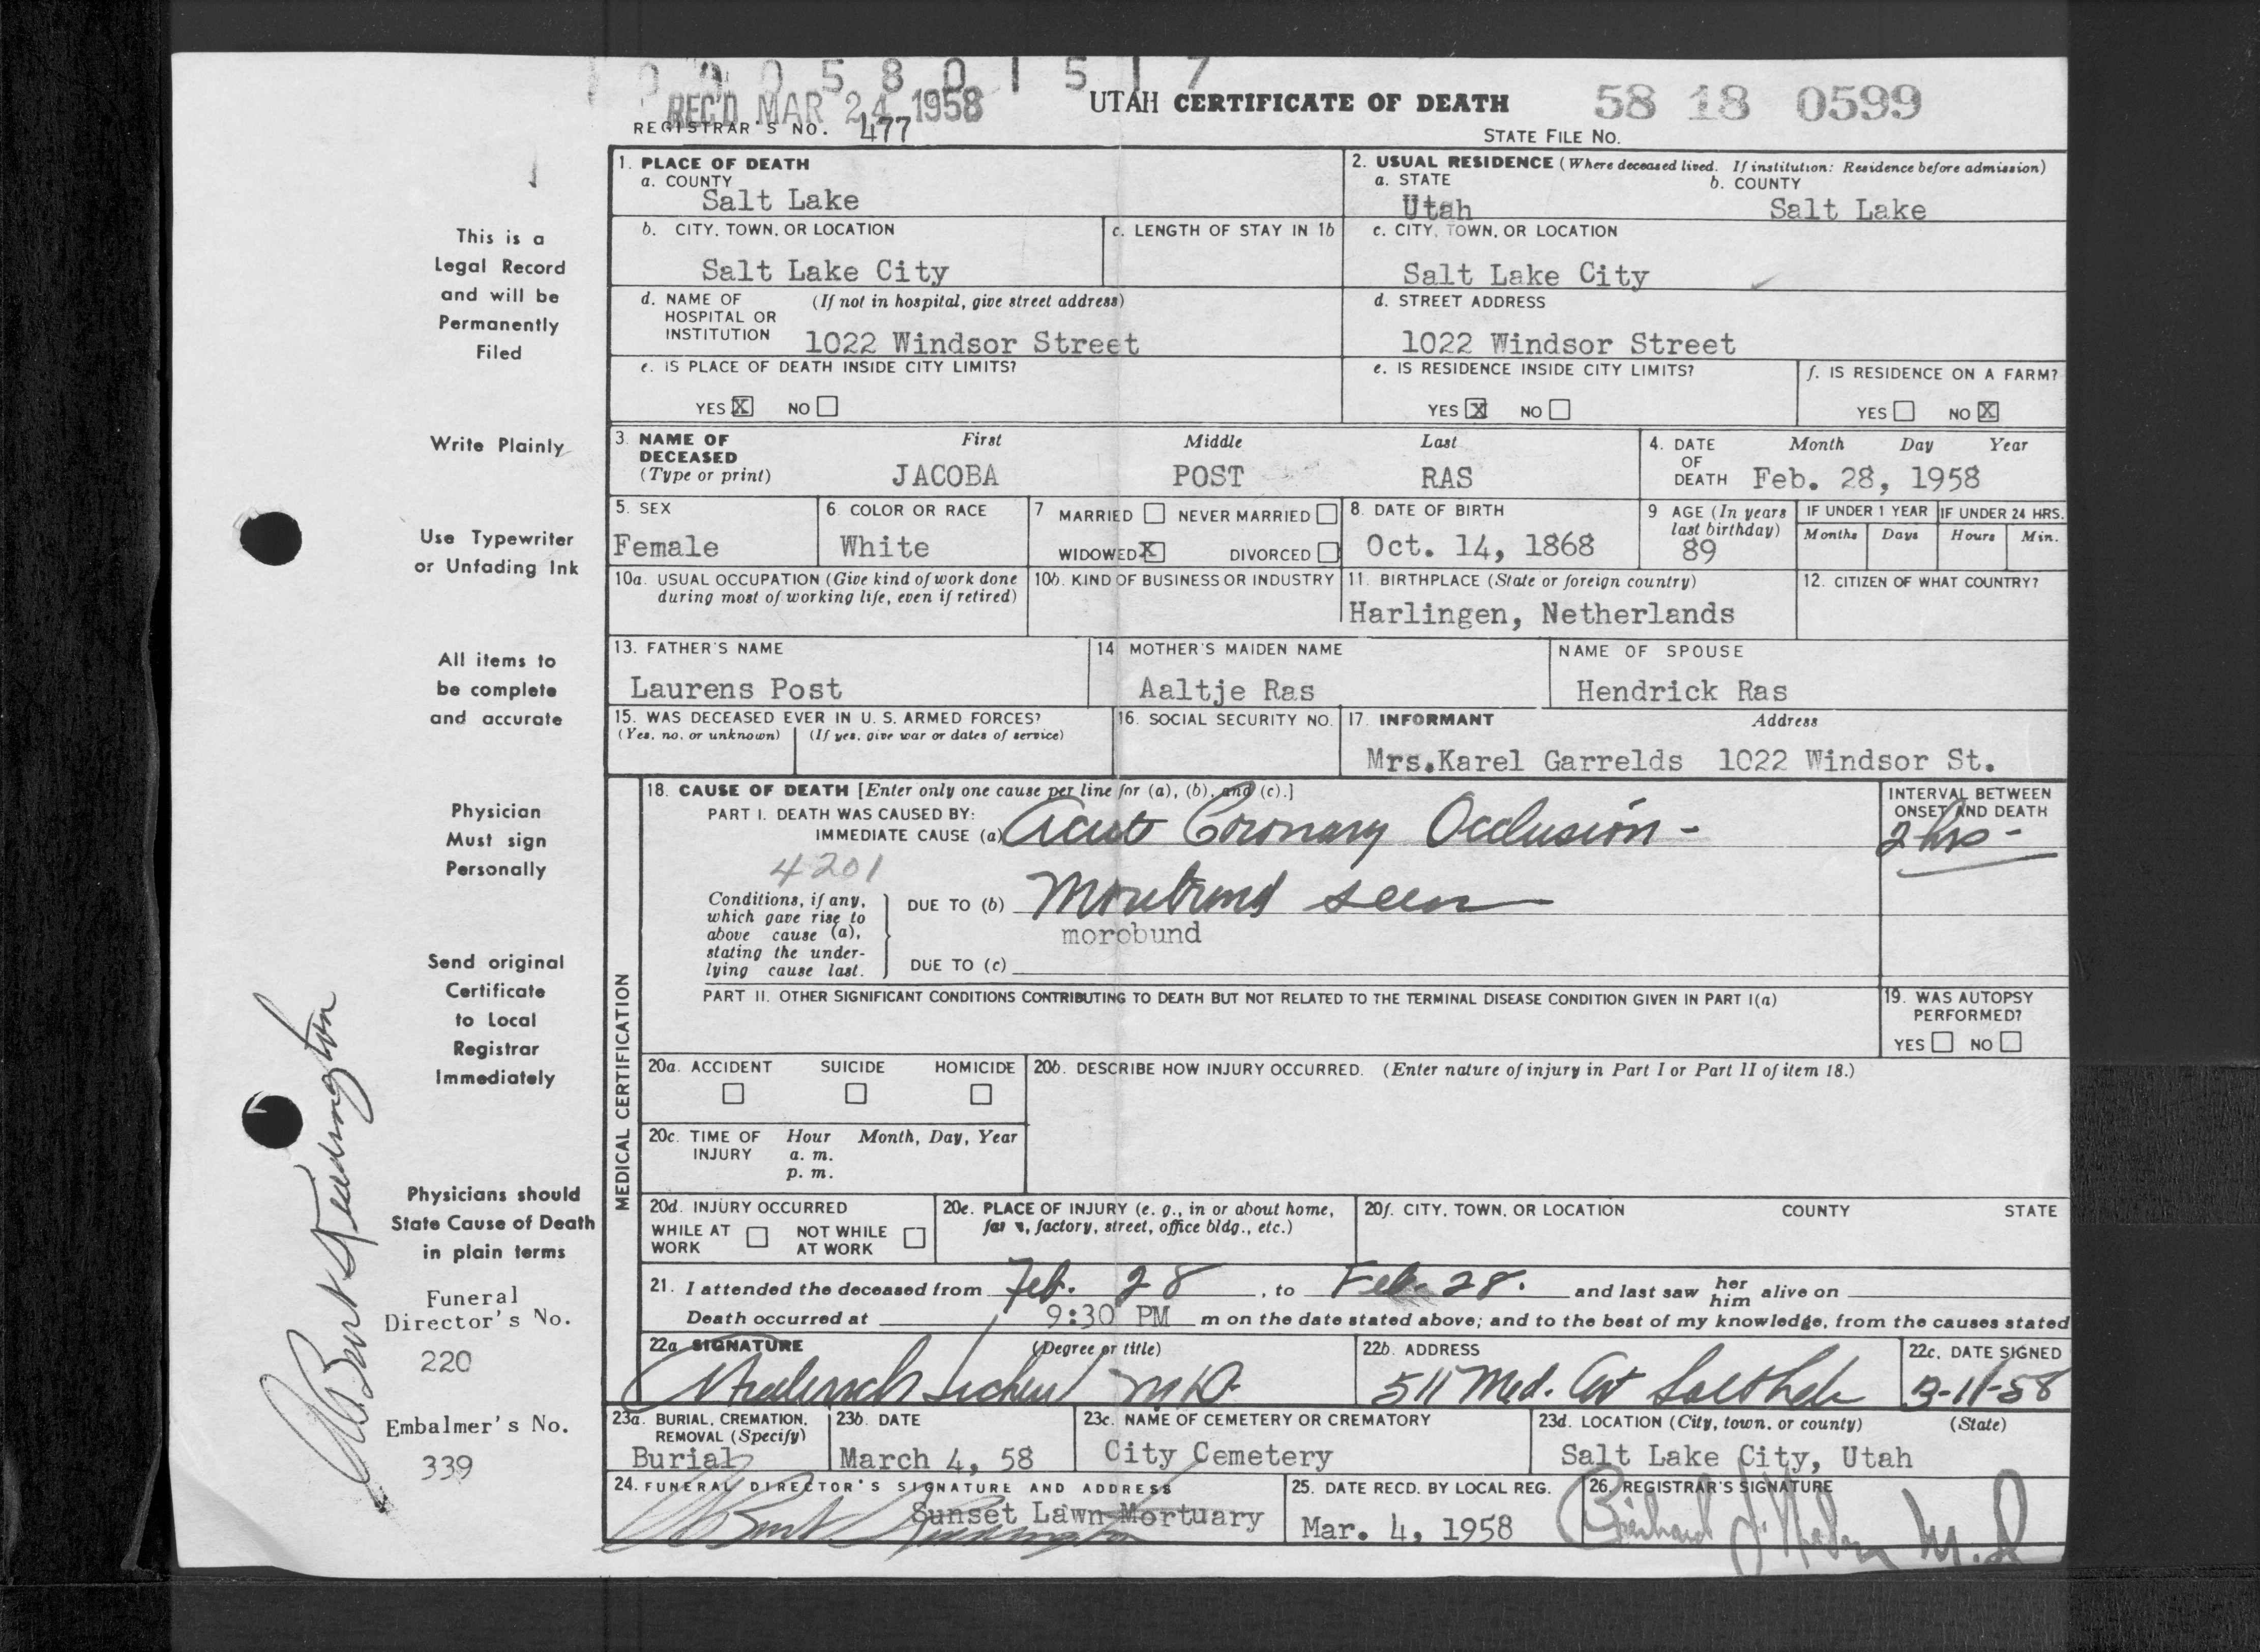 1 0 0 0 5 8 0 1 5 1 7
REC'D MAR 24 1958
UTAH CERTIFICATE OF DEATH
58 18 0599
REGISTRAR'S NO. 477
STATE FILE NO.
This is a
Legal Record
and will be
Permanently
Filed
Write Plainly
Use Typewriter
or Unfading Ink
All items to
be complete
and accurate
Physician
Must sign
Personally
Send original
Certificate
to Local
Registrar
Immediately
Physicians should
State Cause of Death
in plain terms
Funeral
Director's No.
220
Embalmer's No.
339
1. PLACE OF DEATH
a. COUNTY
Salt Lake
2. USUAL RESIDENCE (Where deceased lived. If institution: Residence before admission)
a. STATE b. COUNTY
Utah Salt Lake
b. CITY, TOWN, OR LOCATION
Salt Lake City
c. LENGTH OF STAY IN 1b
c. CITY, TOWN, OR LOCATION
Salt Lake City
d. NAME OF (If not in hospital, give street address)
HOSPITAL OR
INSTITUTION 1022 Windsor Street
d. STREET ADDRESS
1022 Windsor Street
e. IS PLACE OF DEATH INSIDE CITY LIMITS?
YES X NO
e. IS RESIDENCE INSIDE CITY LIMITS?
YES X NO
f. IS RESIDENCE ON A FARM?
YES NO X
3. NAME OF First Middle Last
DECEASED
(Type or print) JACOBA POST RAS
4. DATE Month Day Year
OF
DEATH Feb. 28, 1958
5. SEX
Female
6. COLOR OR RACE
White
7 MARRIED NEVER MARRIED
WIDOWED X DIVORCED
8. DATE OF BIRTH
Oct. 14, 1868
9 AGE (In years
last birthday)
89
IF UNDER 1 YEAR IF UNDER 24 HRS.
Months Days Hours Min.
10a. USUAL OCCUPATION (Give kind of work done
during most of working life, even if retired)
10b. KIND OF BUSINESS OR INDUSTRY
11. BIRTHPLACE (State or foreign country)
Harlingen, Netherlands
12. CITIZEN OF WHAT COUNTRY?
13. FATHER'S NAME
Laurens Post
14 MOTHER'S MAIDEN NAME
Aaltje Ras
NAME OF SPOUSE
Hendrick Ras
15. WAS DECEASED EVER IN U. S. ARMED FORCES?
(Yes, no, or unknown) (If yes, give war or dates of service)
16. SOCIAL SECURITY NO.
17. INFORMANT Address
Mrs.Karel Garrelds 1022 Windsor St.
MEDICAL CERTIFICATION
18. CAUSE OF DEATH [Enter only one cause per line for (a), (b), and (c).]
PART I. DEATH WAS CAUSED BY:
IMMEDIATE CAUSE (a) Acute Coronary Occlusion -
INTERVAL BETWEEN
ONSET AND DEATH
2 hrs -
4201
Conditions, if any,
which gave rise to
above cause (a),
stating the under-
lying cause last.
DUE TO (b) Moribund seen
morobund
DUE TO (c)
PART II. OTHER SIGNIFICANT CONDITIONS CONTRIBUTING TO DEATH BUT NOT RELATED TO THE TERMINAL DISEASE CONDITION GIVEN IN PART I(a)
19. WAS AUTOPSY
PERFORMED?
YES NO
20a. ACCIDENT SUICIDE HOMICIDE
20b. DESCRIBE HOW INJURY OCCURRED. (Enter nature of injury in Part I or Part II of item 18.)
20c. TIME OF Hour Month, Day, Year
INJURY a. m.
p. m.
20d. INJURY OCCURRED
WHILE AT NOT WHILE
WORK AT WORK
20e. PLACE OF INJURY (e. g., in or about home,
farm, factory, street, office bldg., etc.)
20f. CITY, TOWN, OR LOCATION COUNTY STATE
21. I attended the deceased from Feb. 28, to Feb. 28. and last saw her him alive on
Death occurred at 9:30 PM m on the date stated above; and to the best of my knowledge, from the causes stated
22a SIGNATURE (Degree or title)
M.D.
22b. ADDRESS
511 Med. Art Salt Lake
22c. DATE SIGNED
3-11-58
23a. BURIAL, CREMATION,
REMOVAL (Specify)
Burial
23b. DATE
March 4, 58
23c. NAME OF CEMETERY OR CREMATORY
City Cemetery
23d. LOCATION (City, town, or county) (State)
Salt Lake City, Utah
24. FUNERAL DIRECTOR'S SIGNATURE AND ADDRESS
Sunset Lawn Mortuary
25. DATE RECD. BY LOCAL REG.
Mar. 4, 1958
26. REGISTRAR'S SIGNATURE
M.D